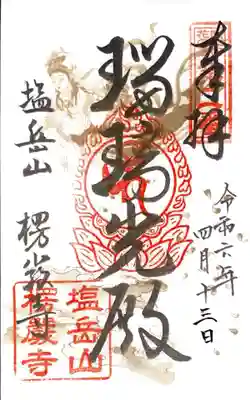 奉拝
令和六年
四月十三日
瑠璃光殿
塩岳山
楞厳寺
塩岳山
楞嚴寺